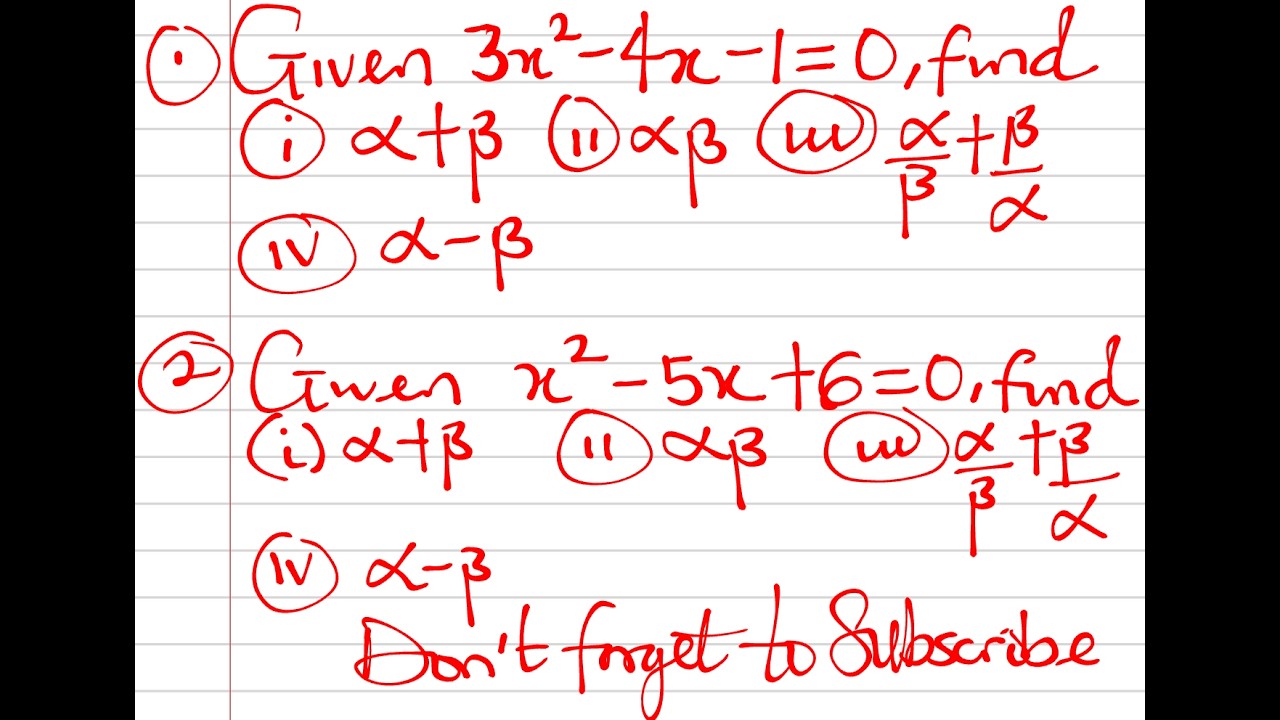 ① Given 3x² - 4x - 1 = 0, find
(i) α + β (ii) αβ (iii) α/β + β/α
(iv) α - β
② Given x² - 5x + 6 = 0, find
(i) α + β (ii) αβ (iii) α/β + β/α
(iv) α - β
Don't forget to Subscribe